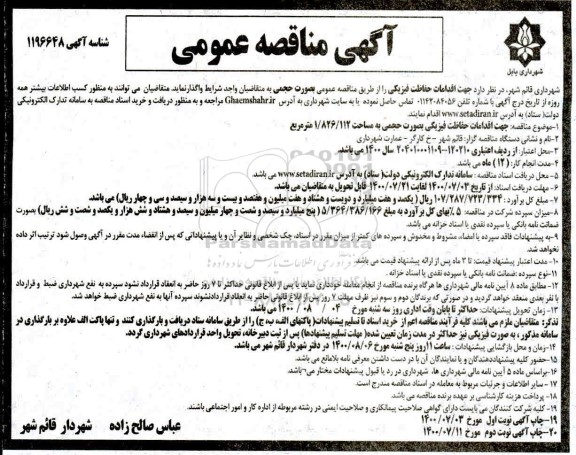 آگهی مناقصه عمومی
شناسه آگهی ۱۱۹۶۶۴۸
شهرداری بابل
شهرداری قائم شهر، در نظر دارد جهت اقدامات حفاظت فیزیکی را از طریق مناقصه عمومی بصورت حجمی به متقاضیان واجد شرایط واگذار نماید. متقاضیان می توانند به منظور کسب اطلاعات بیشتر همه
روزه از تاریخ درج آگهی با شماره تلفن ۰۱۱۴۲۰۸۴۰۵۶ تماس حاصل نموده یا به سایت شهرداری به آدرس Ghaemshahr.ir مراجعه و به منظور دریافت و خرید اسناد مناقصه به سامانه تدارک الکترونیکی
دولت( ستاد) به آدرس www.setadiran.ir اقدام نمایند.
۱-موضوع مناقصه: جهت اقدامات حفاظت فیزیکی بصورت حجمی به مساحت ۱/۸۲۶/۱۱۲ مترمربع
۲-نام و نشانی دستگاه مناقصه گزار: قائم شهر -خ کارگر - عمارت شهرداری
۳-محل اعتبار: از ردیف اعتباری ۱۲۰۲۱۰-۲۰۴۰۱۰۰۰۱۱۰۹ سال ۱۴۰۰ می باشد.
۴-مدت انجام کار: ( ۱۲ ) ماه می باشد
۵-محل دریافت اسناد مناقصه: سامانه تدارک الکترونیکی دولت( ستاد) به آدرس www.setadiran.ir می باشد.
۶-مهلت دریافت اسناد: از تاریخ ۱۴۰۰/۰۷/۰۳ لغایت ۱۴۰۰/۰۷/۲۱ قابل تحویل به متقاضیان می باشد.
۷- مبلغ کل برآورد : ۱۰۷/۲۸۷/۷۲۳/۳۳۴ ریال ( یکصد و هفت میلیارد و دویست و هشتاد و هفت میلیون و هفتصد و بیست و سه هزار و سیصد و سی و چهار ریال) می باشد.
۸-میزان سپرده شرکت در مناقصه: ۵ ٪بهای کل برآورد به مبلغ ۵/۳۶۴/۳۸۶/۱۶۶ ( پنج میلیارد و سیصد و شصت و چهار میلیون و سیصد و هشتاد و شش هزار و یکصد و شصت و شش ریال) بصورت
ضمانت نامه بانکی یا سپرده نقدی یا اسناد خزانه می باشد.
۹-به پیشنهادات فاقد سپرده یا امضاء، مشروط و مخدوش و سپرده های کمتر از میزان مقرر در اسناد، چک شخصی و نظایر آن و یا پیشنهاداتی که پس از انقضاء مدت مقرر در آگهی وصول شود ترتیب اثر داده
نخواهد شد.
۱۰-مدت اعتبار پیشنهاد قیمت: تا ۳ ماه پس از ارائه پیشنهاد قیمت می باشد.
۱۱-نوع سپرده :ضمانت نامه بانکی یا سپرده نقدی یا اسناد خزانه .
۱۲-مطابق ماده ۸ آیین نامه مالی شهرداری ها هرگاه برنده مناقصه از انجام معامله خودداری نماید یا پس از ابلاغ قانونی حداکثر تا ۷ روز حاضر به انعقاد قرارداد نشود سپرده به نفع شهرداری ضبط و قرارداد
با نفر بعدی منعقد خواهد گردید و در صورتی که برندگان دوم و سوم نیز ظرف مهلت ۷ روز پس از ابلاغ قانونی حاضر به انعقاد قراردادنشوند سپرده آنها به نفع شهرداری ضبط خواهد شد.
۱۳- زمان تحویل پیشنهادات: حداکثر تا پایان وقت اداری روز سه شنبه مورخ ۱۴۰۰ / ۰۸ / ۰۴ می باشد.
تذکر: متقاضیان ملزم می باشند کلیه فرآیند مناقصه اعم از خرید اسناد تا تسلیم پیشنهادات( پاکتهای الف، ب، ج) را از طریق سامانه ستاد دریافت و بارگذاری کنند و تنها پاکت الف علاوه بر بارگذاری در
سامانه مذکور ، به صورت فیزیکی نیز حداکثر در مدت زمان تعیین شده( مهلت تسلیم پیشنهادها) پس از ثبت دبیرخانه، تحویل واحد قراردادهای شهرداری گردد.
۱۴-زمان و محل بازگشایی پیشنهادات : ساعت ۱۱روز پنج شنبه مورخ ۱۴۰۰/۰۸/۰۶ در دفتر شهردار قائم شهر می باشد.
۱۵-حضور کلیه پیشنهاددهندگان و یا نمایندگان آنان با در دست داشتن معرفی نامه بلامانع می باشد.
۱۶-براساس ماده ۵ آیین نامه مالی شهرداری ها، شهرداری در رد یا قبول پیشنهادات مختار می-باشد.
۱۷ – سایر اطلاعات و جزئیات مربوط به معامله در اسناد مناقصه مندرج است.
۱۸- پرداخت هزینه کارشناسی بر عهده برنده مناقصه می باشد.
۱۹- کلیه شرکت کنندگان می بایست دارای گواهی صلاحیت پیمانکاری و صلاحیت ایمنی در رشته مربوطه از اداره کار و امور اجتماعی باشند.
۱۹-چاپ آگهی نوبت اول مورخ ۱۴۰۰/۰۷/۰۳
۲۰-چاپ آگهی نوبت دوم مورخ ۱۴۰۰/۰۷/۱۱
عباس صالح زاده شهردار قائم شهر
ParsNamadData